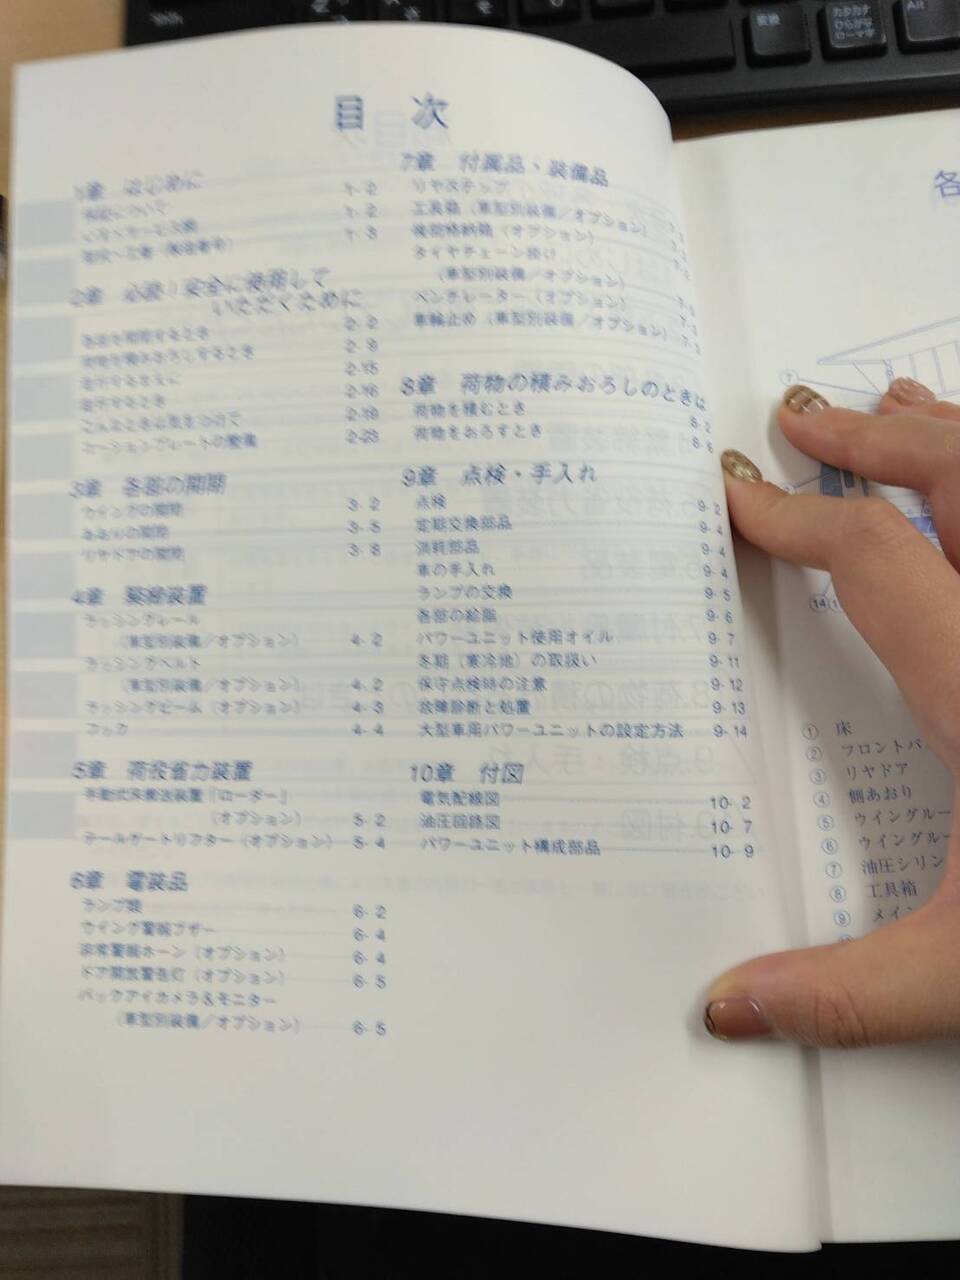 目 次
1章 はじめに
保証について 1-2
いすゞサービス網 1-2
1-3
2章 必読！安全に使用して
いただくために
各部を開閉するとき 2-2
荷物を積みおろしするとき 2-9
走行するまえに 2-15
走行するとき 2-16
こんなときは気をつけて 2-19
コーションプレートの整備 2-23
3章 各部の開閉
ウイングの開閉 3-2
あおりの開閉 3-5
リヤドアの開閉 3-8
4章 緊締装置
ラッシングレール
（車型別装備／オプション） 4-2
ラッシングベルト
（車型別装備／オプション） 4-2
ラッシングビーム（オプション） 4-3
フック 4-4
5章 荷役省力装置
手動式床搬送装置「ローダー」
（オプション） 5-2
テールゲートリフター（オプション） 5-4
6章 電装品
ランプ類 6-2
ウイング警報ブザー 6-4
非常警報ホーン（オプション） 6-4
ドア開放警告灯（オプション） 6-5
バックアイカメラ＆モニター
（車型別装備／オプション） 6-5
7章 付属品・装備品
リヤステップ
工具箱（車型別装備／オプション）
後部格納箱（オプション）
タイヤチェーン掛け
（車型別装備／オプション）
ベンチレーター（オプション）
車輪止め（車型別装備／オプション）
8章 荷物の積みおろしのときは
荷物を積むとき 8-2
荷物をおろすとき 8-6
9章 点検・手入れ
点検 9-2
定期交換部品 9-4
消耗部品 9-4
車の手入れ 9-4
ランプの交換 9-5
各部の給脂 9-6
パワーユニット使用オイル 9-7
冬期（寒冷地）の取扱い 9-11
保守点検時の注意 9-12
故障診断と処置 9-13
大型車用パワーユニットの設定方法 9-14
10章 付図
電気配線図 10-2
油圧回路図 10-7
パワーユニット構成部品 10-9
各
① 床
② フロントパ
③ リヤドア
④ 側あおり
⑤ ウイングルー
⑥ ウイングルー
⑦ 油圧シリン
⑧ 工具箱
⑨ メイン
変換
カタカナ
ひらがな
ローマ字
Alt